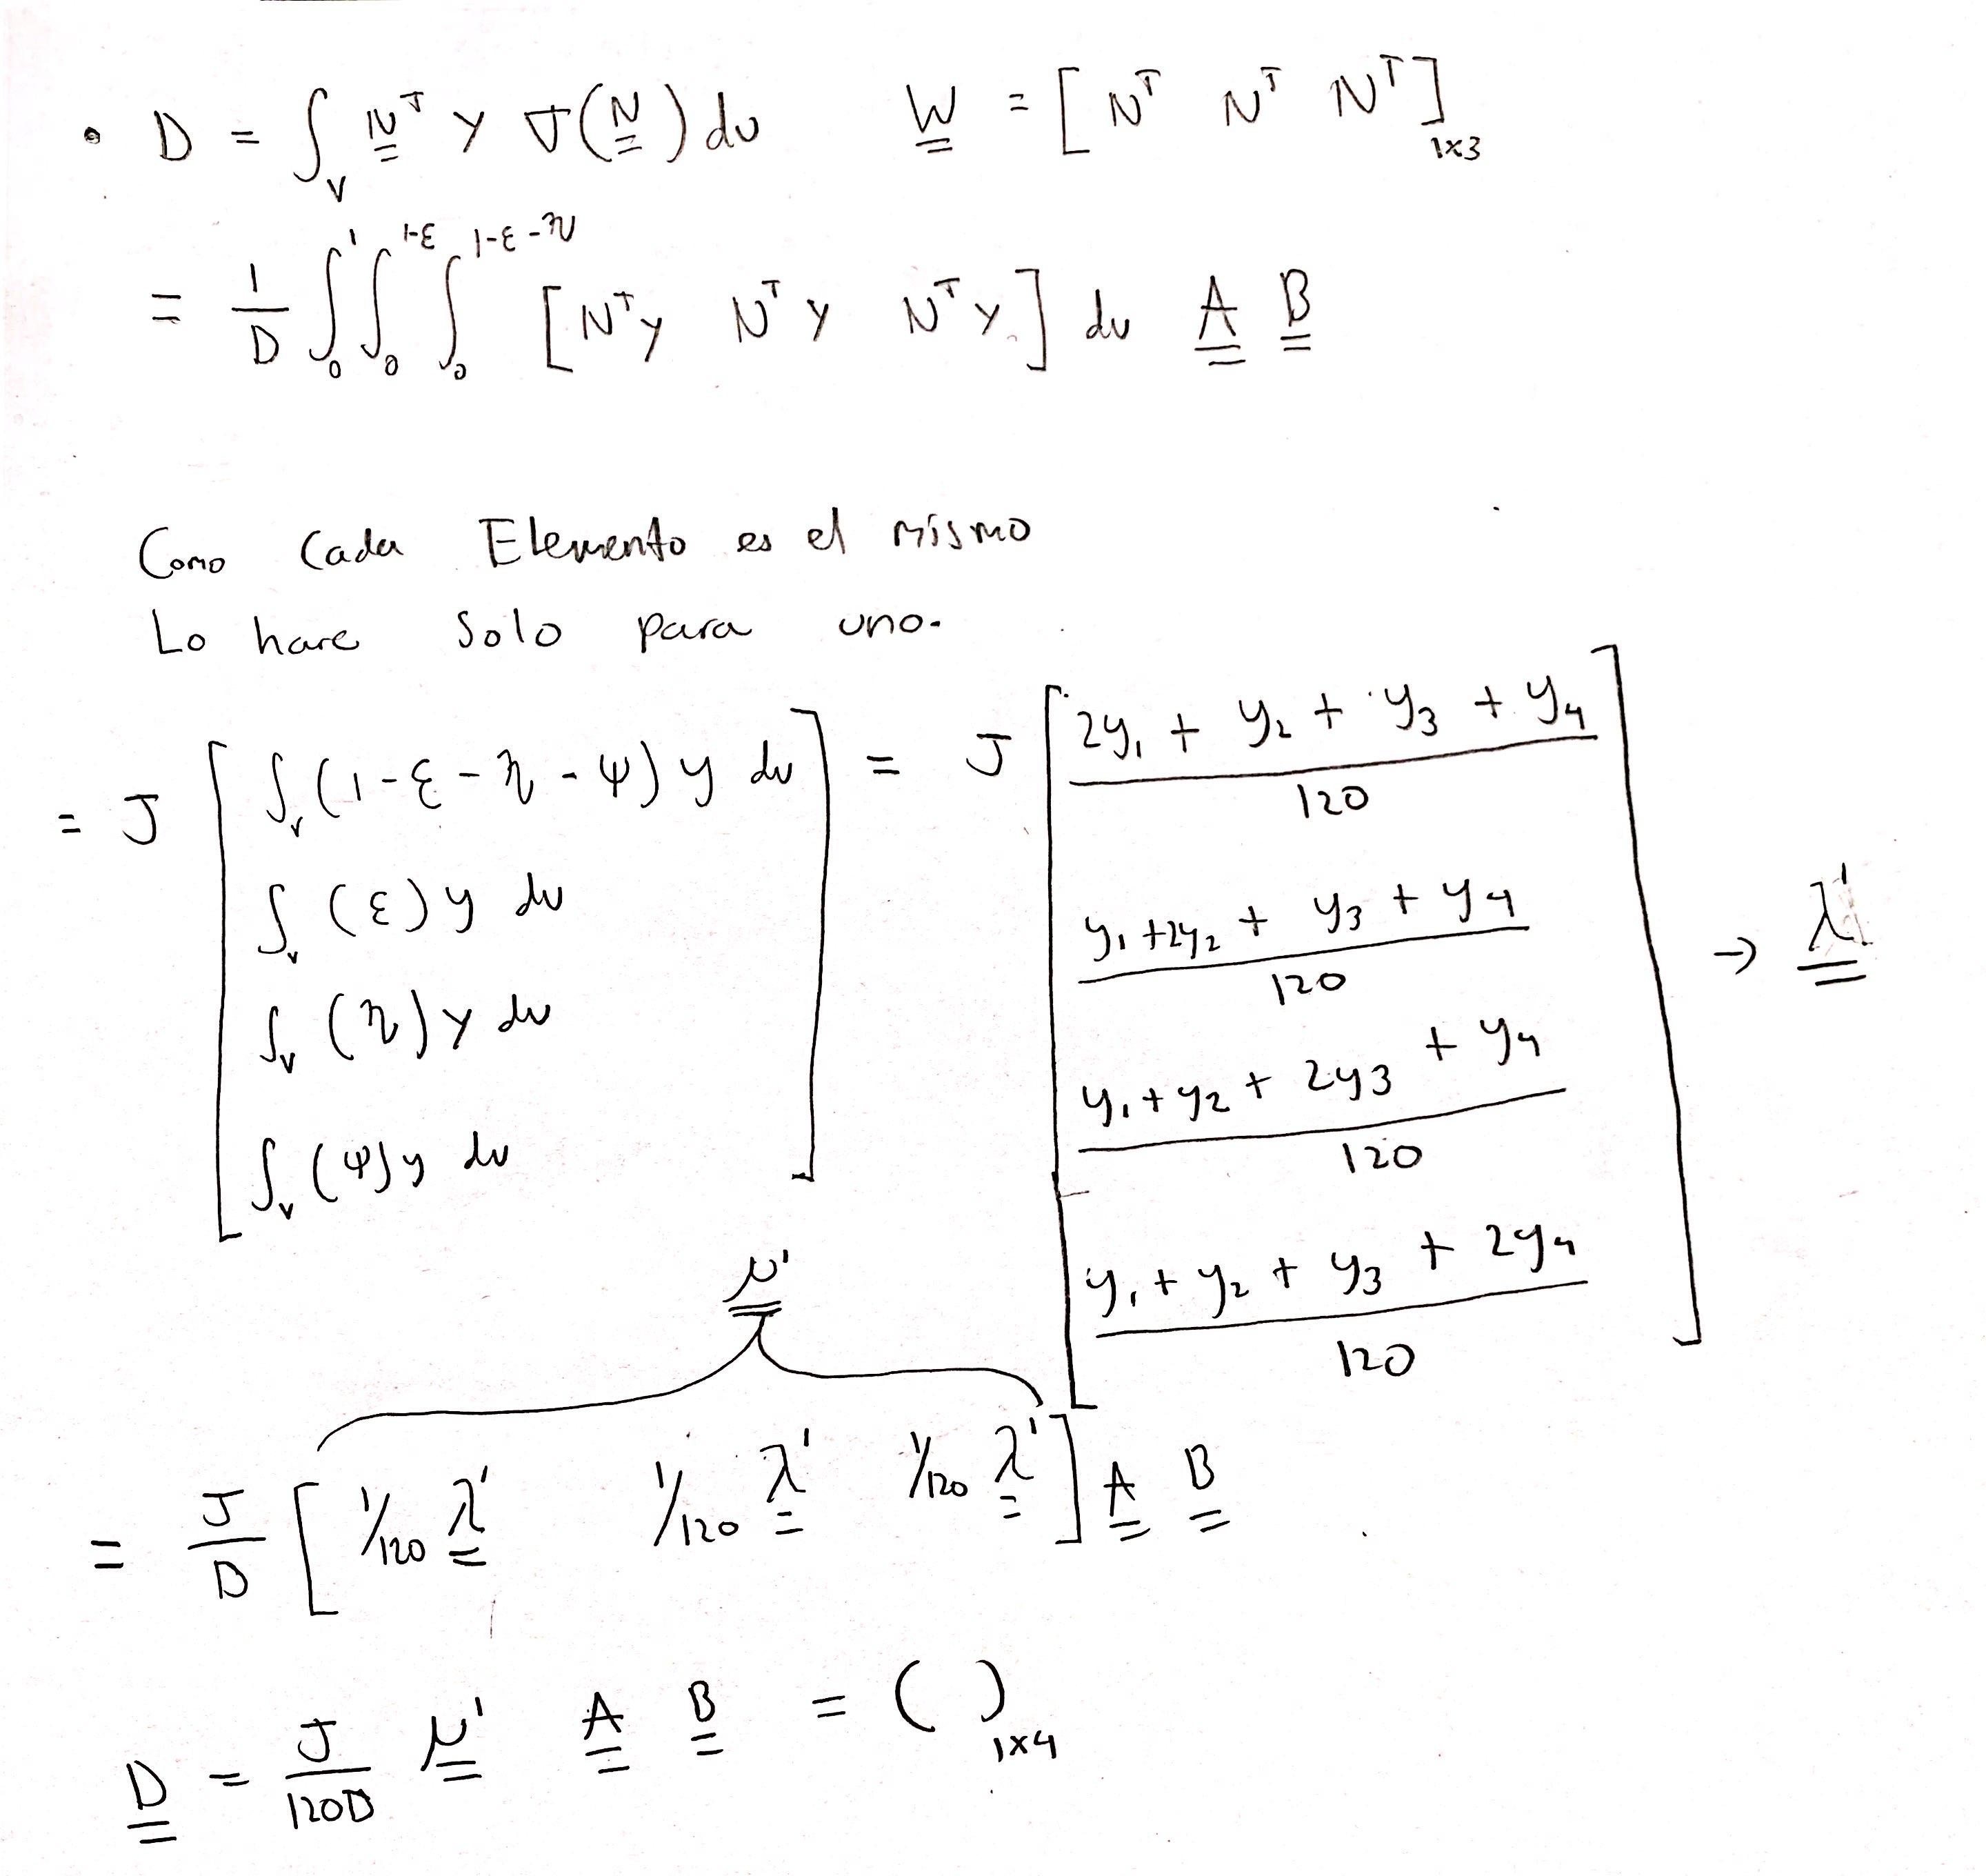 • D = ∫_V N^T y ∇(N) dv   W = [N^T N^T N^T]_{1x3}
= 1/D ∫_0^1 ∫_0^{1-ε} ∫_0^{1-ε-η} [N^T y N^T y N^T y] dv A B
Como Cada Elemento es el mismo
Lo hare Solo para uno.
= J [ ∫_v (1-ε-η-ψ) y dv = J [ (2y1 + y2 + y3 + y4)/120
∫_v (ε) y dv   (y1 + 2y2 + y3 + y4)/120 → λ'
∫_v (η) y dv   (y1 + y2 + 2y3 + y4)/120
∫_v (ψ) y dv ]   (y1 + y2 + y3 + 2y4)/120 ]
μ'
= J/D [ 1/120 λ' 1/120 λ' 1/120 λ' ] A B
D = J/120D μ' A B = ( )_{1x4}